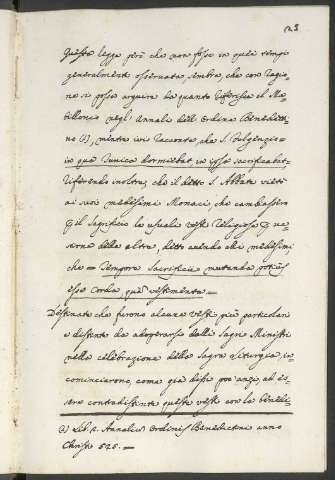 23
Questa legge però che non fosse in quei tempi
generalmente osservata, sembra, che con ragio,
ne si possa arguire da quanto riferisce il Ma,
billonio negl' Annali dell' Ordine Beneditti,
no (1), mentre ivi racconta che S. Fulgenzio =
in qua Tunica dormiebat, in ipsa sacrificabat =
riferendo inoltre, che il detto S. Abbate vietò
ai suoi medesimi Monaci che cambiassero
il Sagrificio le usuali vesti religiose
della altre, detto avendo alli medesimi,
che = Tempore Sacrificii mutanda potius
esse Corda, quam vestimenta =
Destinate che furono alcune vesti più particolari
e distinte da adoperarsi dalli Sagri Ministri
nella celebrazione della Sagra Liturgia, in,
cominciarono, come già dissi poc'anzi, ad es,
sere contradistinte queste vesti con la benedi
Lib. 1. Annalium Ordinis Benedictini anno
Christi 525. =